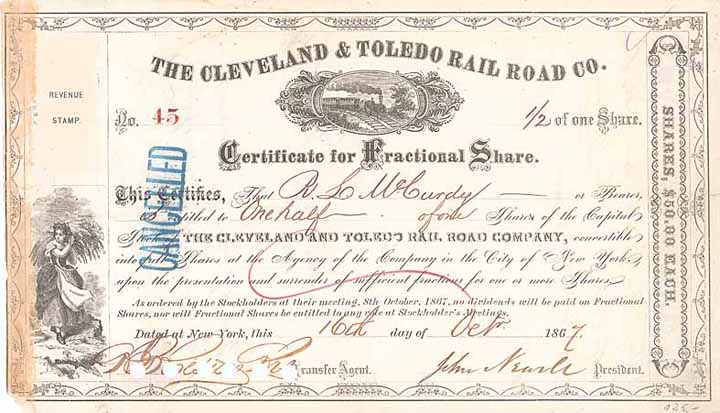 THE CLEVELAND & TOLEDO RAIL ROAD CO.
REVENUE
STAMP.
No. 45
1/2 of one Share.
Certificate for Fractional Share.
This Certifies, That R. L. McCurdy or Bearer,
is entitled to One half of one Shares of the Capital
Stock of THE CLEVELAND AND TOLEDO RAIL ROAD COMPANY, convertible
into full Shares at the Agency of the Company in the City of New York,
upon the presentation and surrender of sufficient fractions for one or more Shares.
As ordered by the Stockholders at their meeting, 8th October, 1867, no dividends will be paid on Fractional
Shares, nor will Fractional Shares be entitled to any vote at Stockholder's Meetings.
Dated at New York, this 16th day of Oct 1867.
Transfer Agent.
John President.
CANCELLED
SHARES, $50.00 EACH.